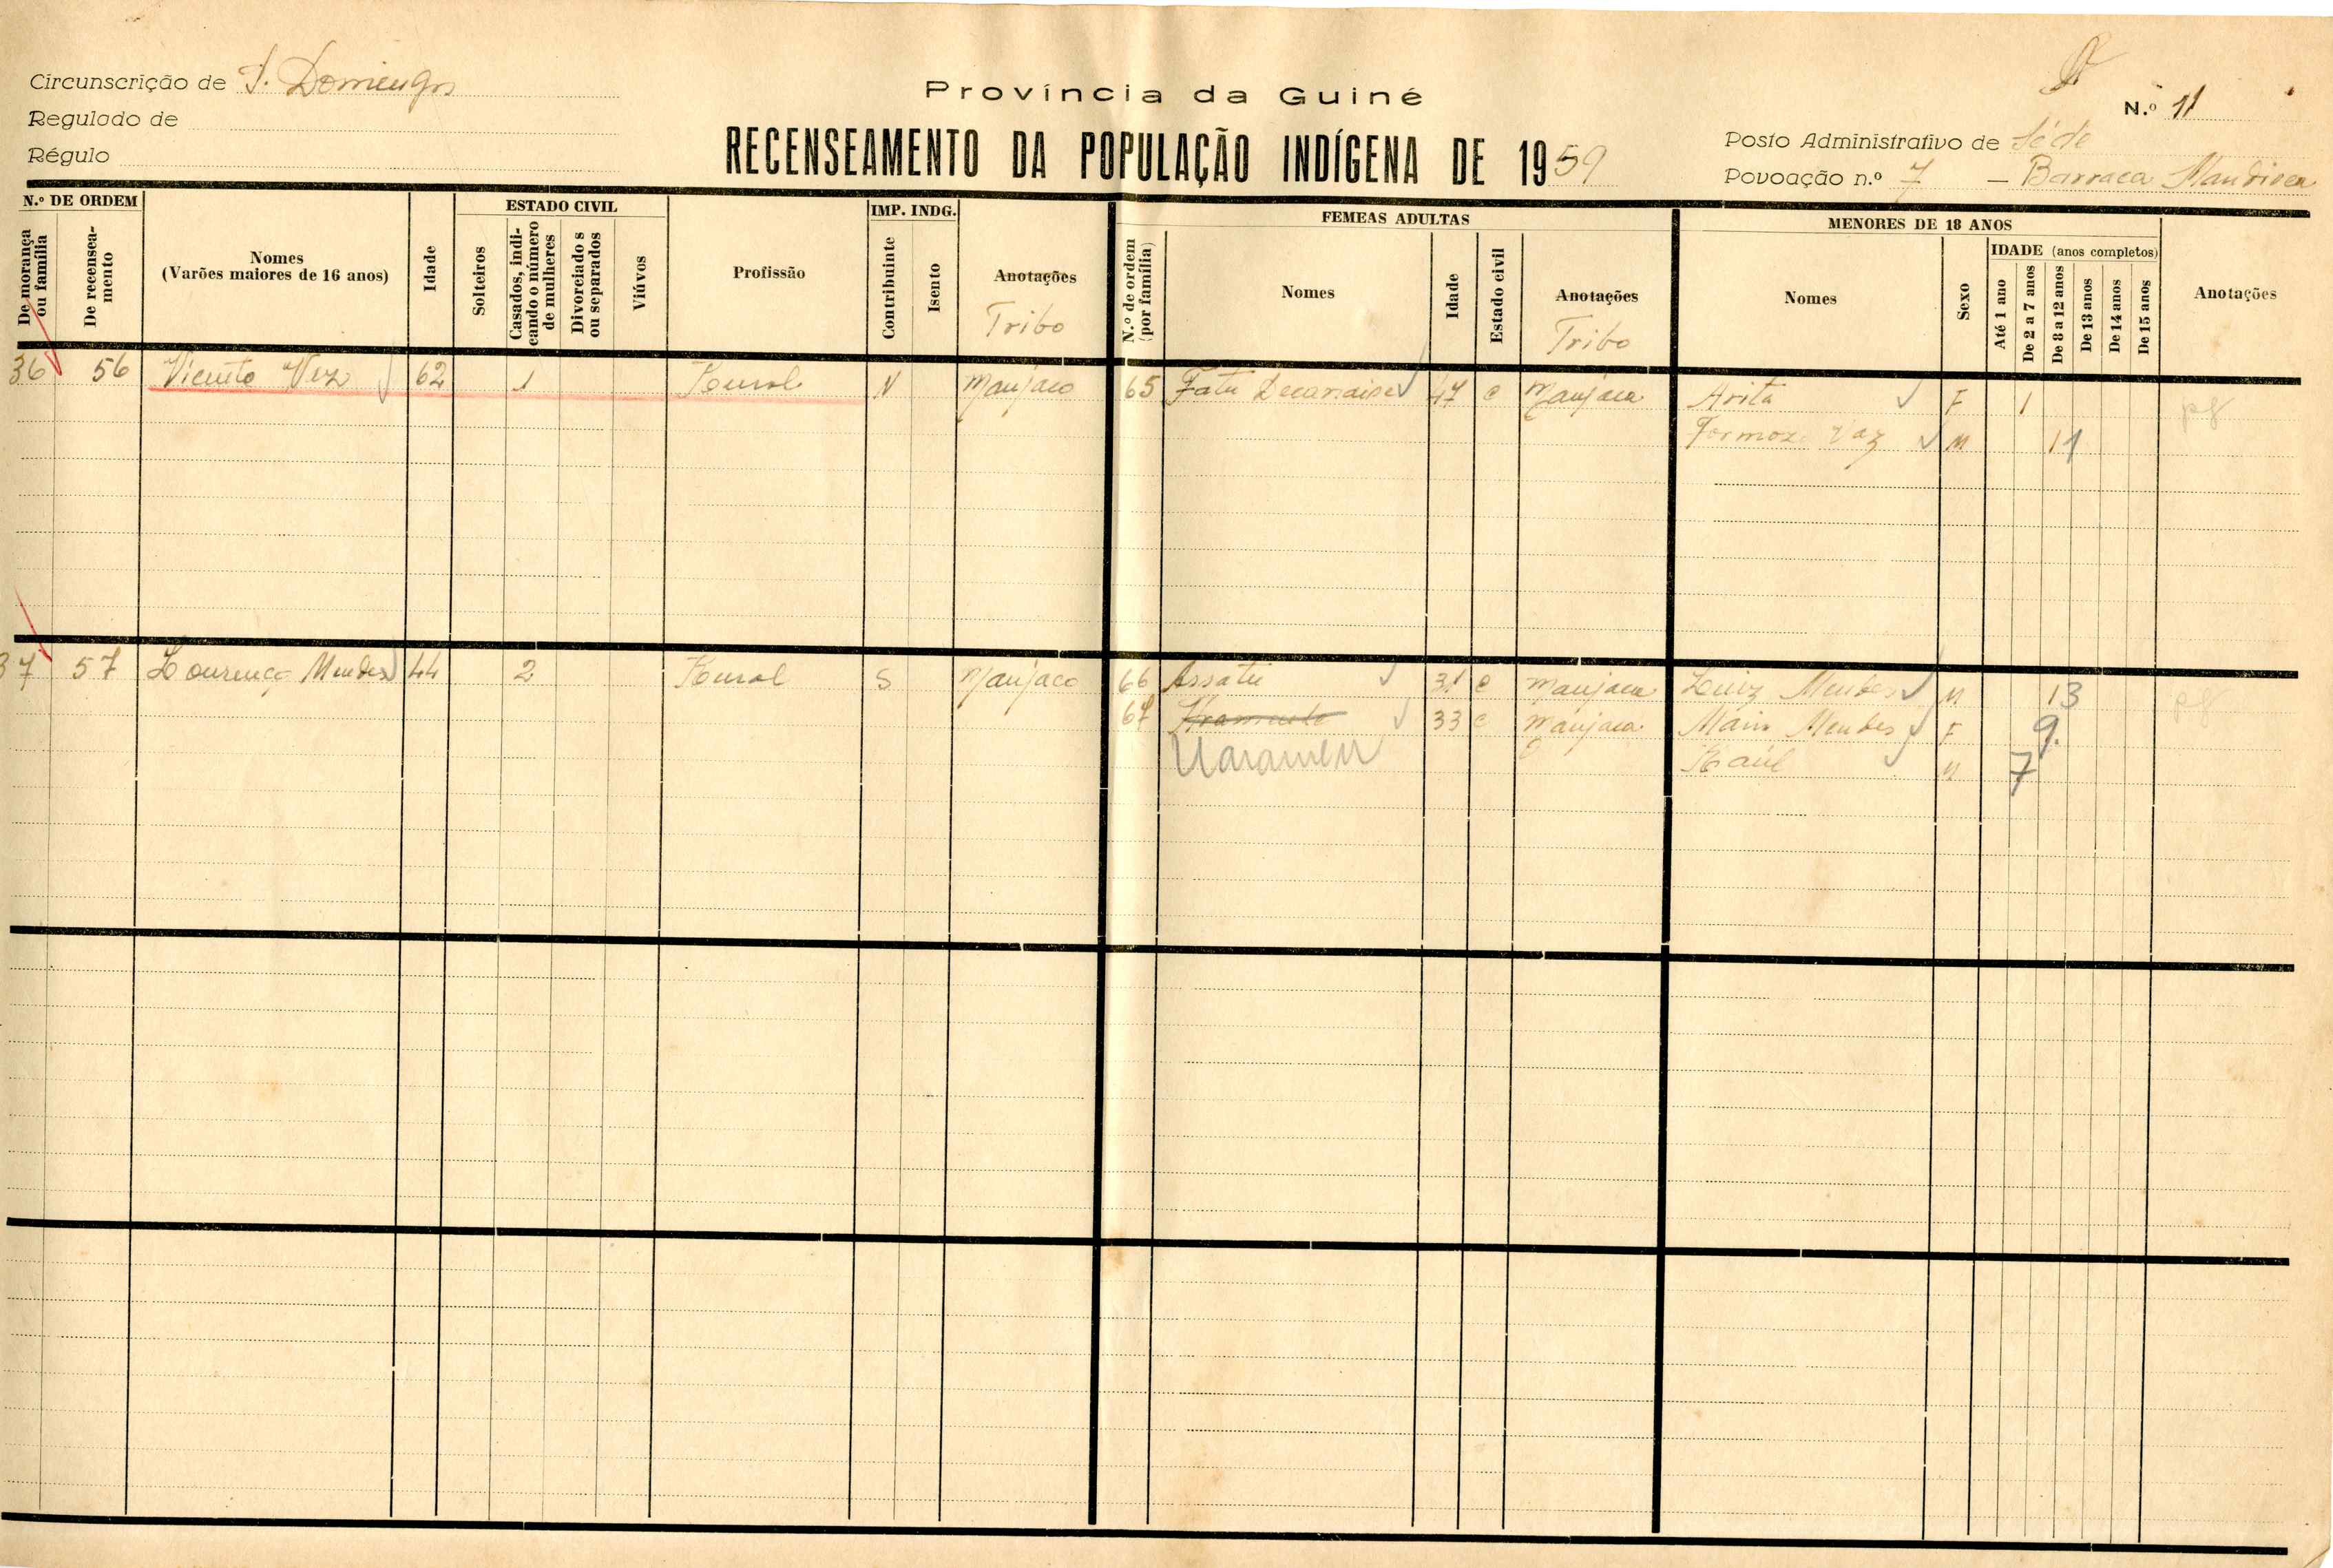 Circunscrição de S. Domingos
Regulado de
Régulo
Província da Guiné
RECENSEAMENTO DA POPULAÇÃO INDÍGENA DE 1959
N.º 11
Posto Administrativo de Séde
Povoação n.º 7 – Barraca Mandinga
N.º DE ORDEM
De morança ou família
De recenseamento
Nomes
(Varões maiores de 16 anos)
Idade
ESTADO CIVIL
Solteiros
Casados, indicando o número de mulheres
Divorciados ou separados
Viúvos
Profissão
IMP. INDG.
Contribuinte
Isento
Anotações
Tribo
FEMEAS ADULTAS
N.º de ordem (por família)
Nomes
Idade
Estado civil
Anotações
Tribo
MENORES DE 18 ANOS
Nomes
Sexo
IDADE (anos completos)
Até 1 ano
De 2 a 7 anos
De 8 a 12 anos
De 13 anos
De 14 anos
De 15 anos
Anotações
36 56 Vicente Vaz 62 1 Rural N Manjaco 65 Fatu 47 c Manjaca Arita F 1 pf
Formoz Vaz M 11
37 57 Lourenço Mendes 44 2 Rural S Manjaco 66 Assatu 31 c Manjaca Luiz Mendes M 13 pf
67 33 c Manjaca Maria Mendes F 9
Raúl M 7